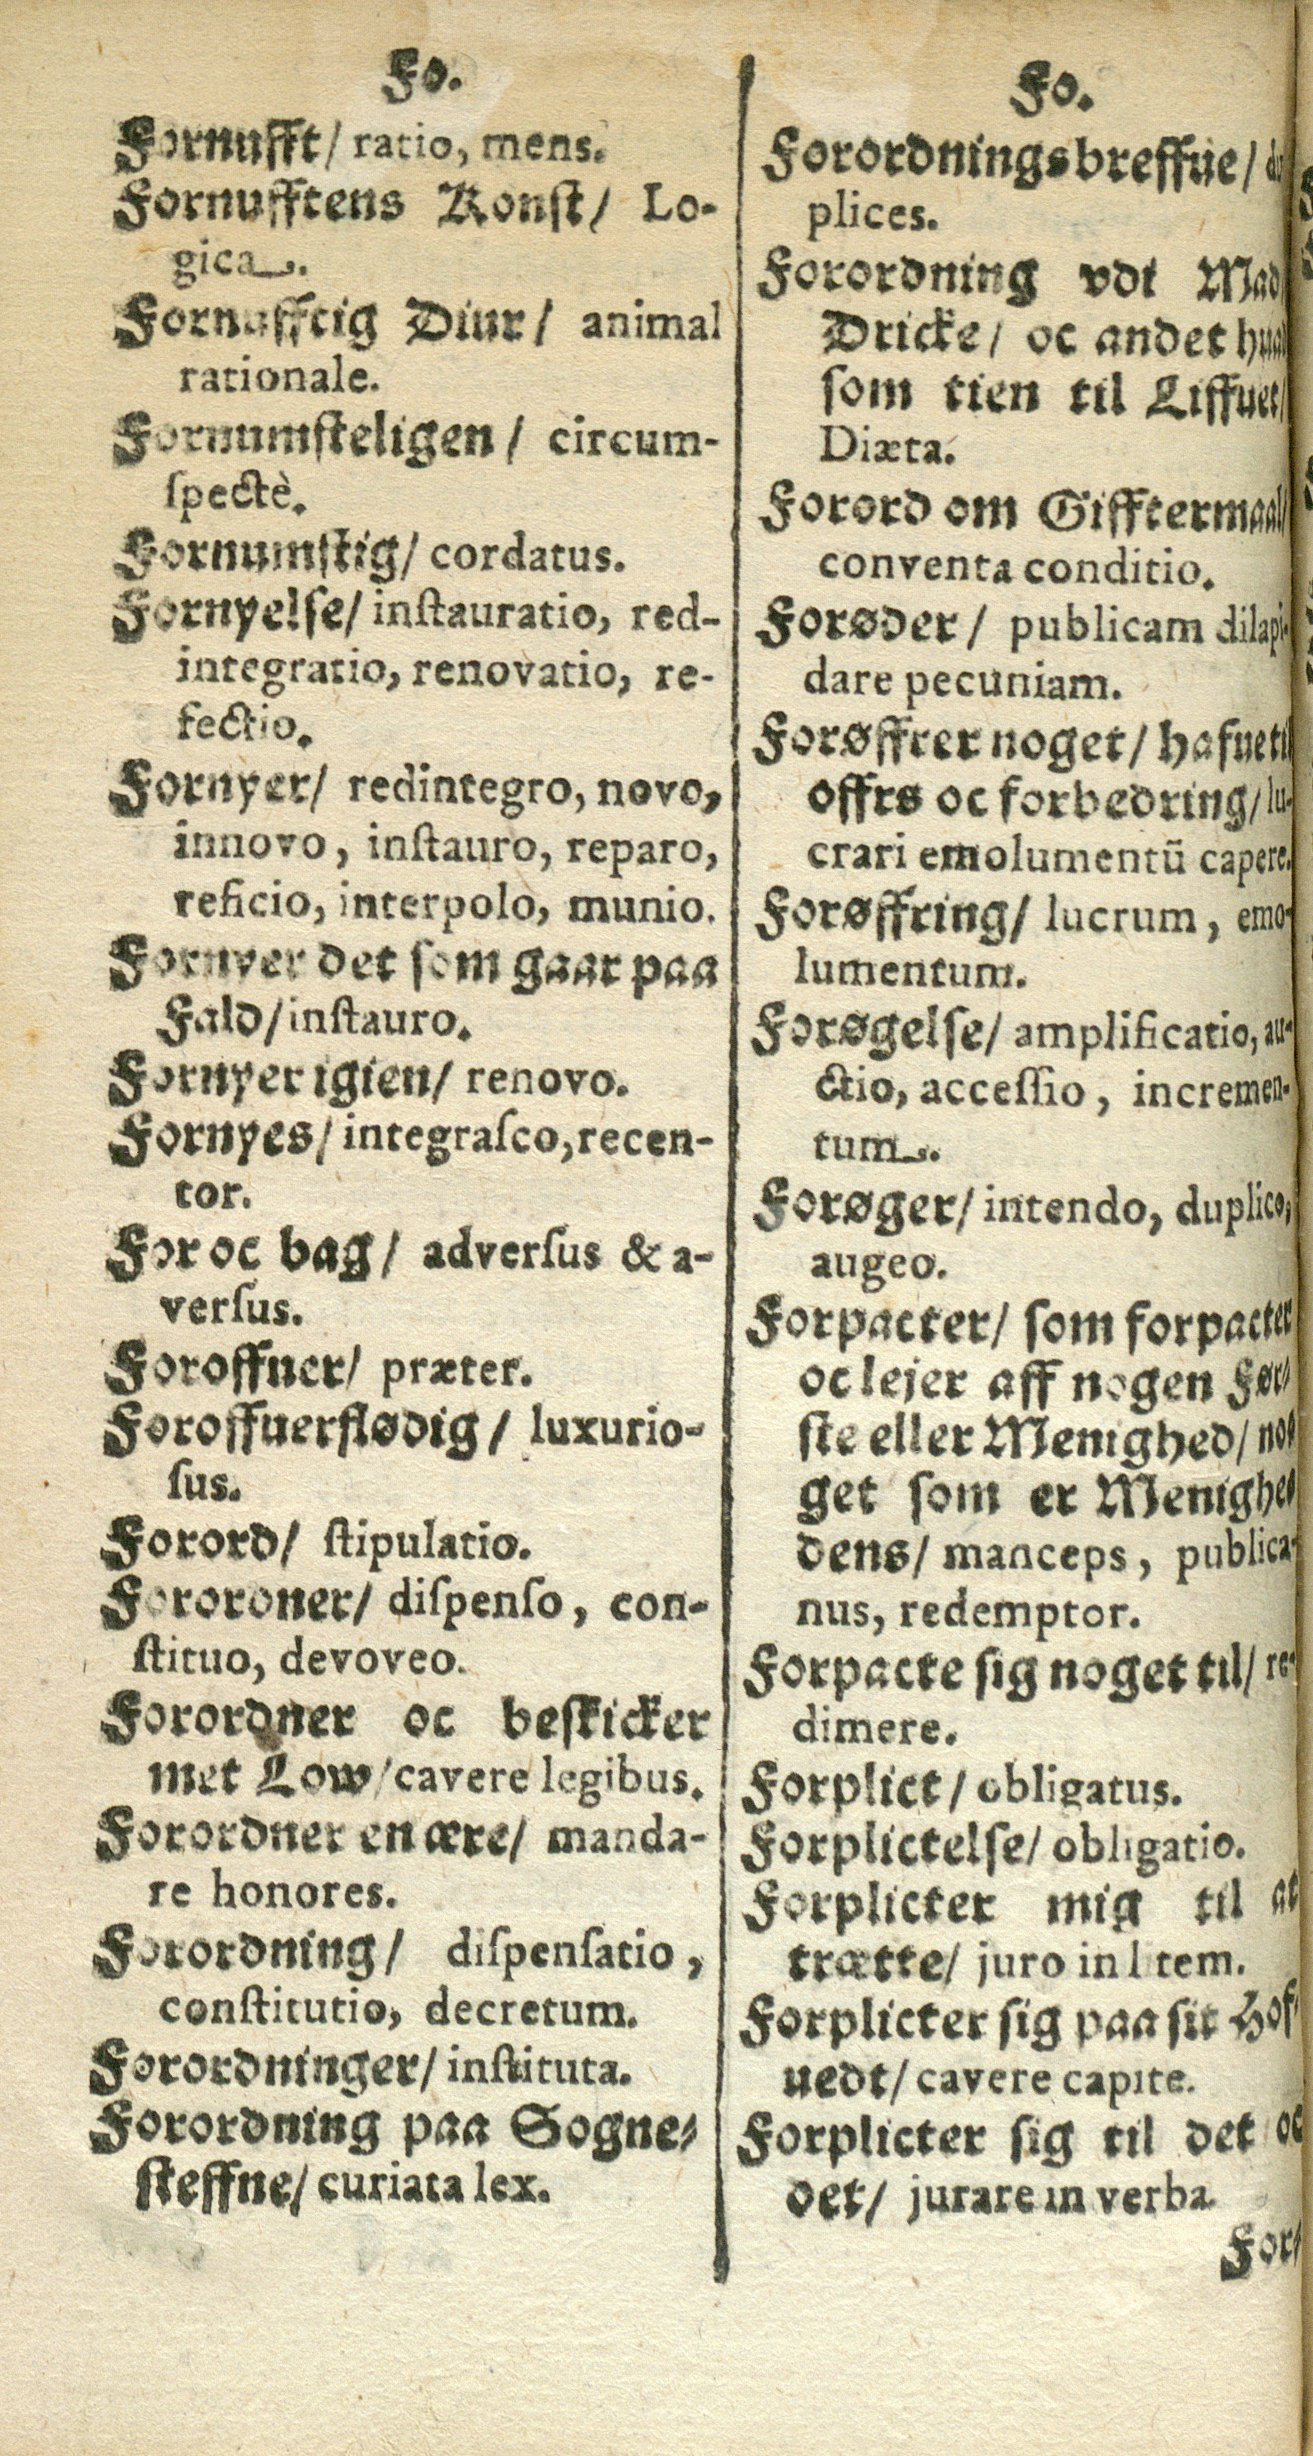 Fo.
Fornufft/ ratio, mens.
Fornufftens Konst/ Lo-
gica.
Fornufftig Diur/ animal
rationale.
Fornumsteligen/ circum-
ſpectè.
Fornumstig/ cordatus.
Fornyelse/ inſtauratio, red-
integratio, renovatio, re-
fectio.
Fornyer/ redintegro, novo,
innovo, inſtauro, reparo,
reficio, interpolo, munio.
Fornyer det som gaar paa
Fald/ inſtauro.
Fornyer igien/ renovo.
Fornyes/ integraſco, recen-
tor.
For oc bag/ adverſus & a-
verſus.
Foroffuer/ præter.
Foroffuerflødig/ luxurio-
ſus.
Forord/ ſtipulatio.
Forordner/ diſpenſo, con-
ſtituo, devoveo.
Forordner oc beskicker
met Low/ cavere legibus.
Forordner en ære/ manda-
re honores.
Forordning/ diſpenſatio,
conſtitutio, decretum.
Forordninger/ inſtituta.
Forordning paa Sogne-
steffne/ curiata lex.
Fo.
Forordningsbreffue/
plices.
Forordning vdi Mad
Dricke/ oc andet
som tien til Liffuet/
Diæta.
Forord om Gifftermaal/
conventa conditio.
Forøder/ publicam dilapi-
dare pecuniam.
Forøffrer noget/ hafue til
offrs oc forbedring/ lu-
crari emolumentū capere.
Forøffring/ lucrum, emo-
lumentum.
Forøgelse/ amplificatio, au-
ctio, acceſſio, incremen-
tum.
Forøger/ intendo, duplico,
augeo.
Forpacter/ som forpacter
oc lejer aff nogen Før-
ste eller Menighed/ no-
get som er Menighe-
dens/ manceps, publica-
nus, redemptor.
Forpacte sig noget til/ re-
dimere.
Forplict/ obligatus.
Forplictelse/ obligatio.
Forplicter mig til at
trætte/ juro in litem.
Forplicter sig paa sit Hof-
uedt/ cavere capite.
Forplicter sig til det oc
det/ jurare in verba.
For-